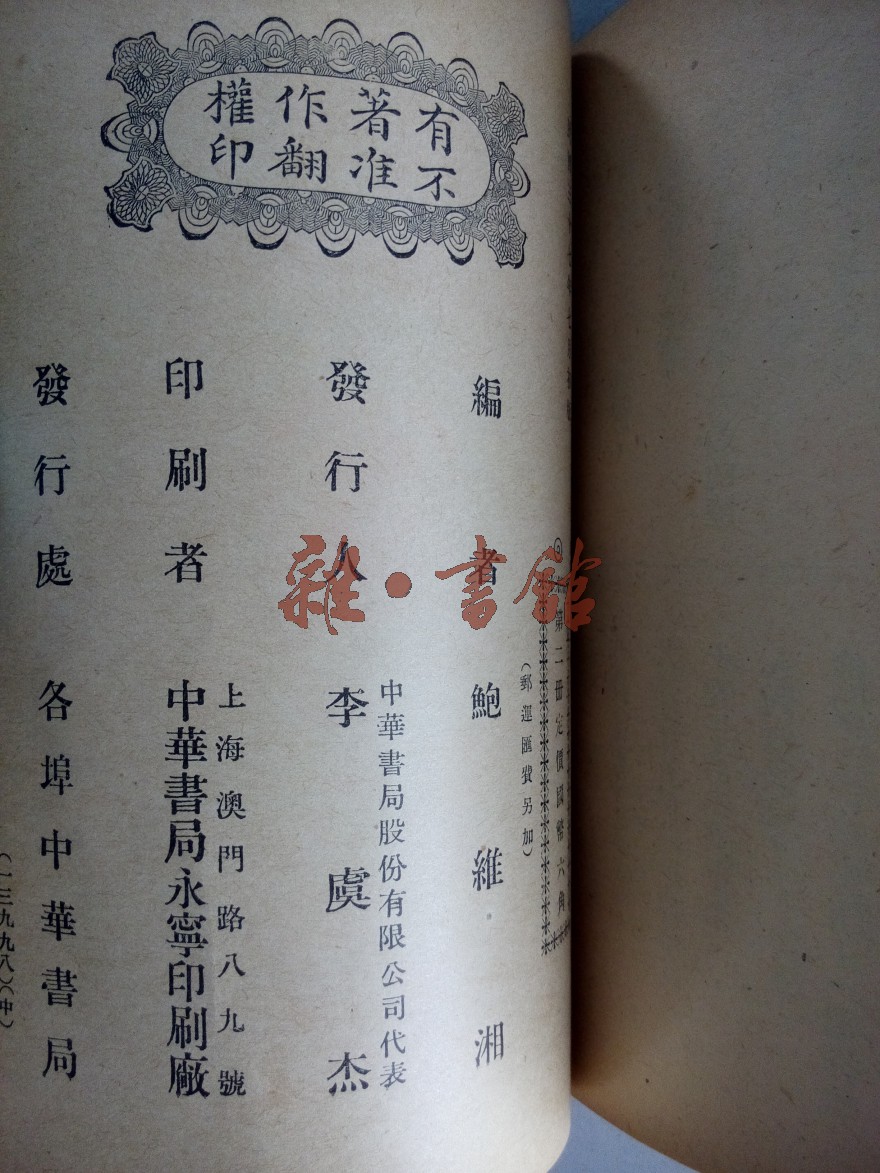 有著作權
不准翻印
第二冊定價國幣六角
（郵運匯費另加）
編者 鮑維湘
中華書局股份有限公司代表
發行人 李虞杰
上海澳門路八九號
印刷者 中華書局永寧印刷廠
發行處 各埠中華書局
（一三九九八）（中）
雜·書館